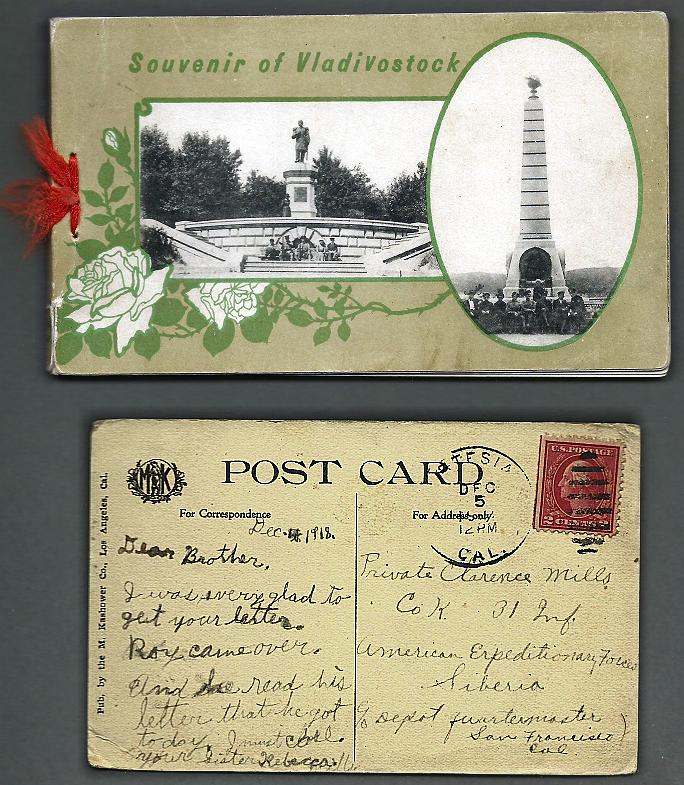 Souvenir of Vladivostock
MK
POST CARD
For Correspondence
For Address only.
TESIA
DEC
5
12 PM
CAL.
U.S. POSTAGE
2 CENTS 2
Pub. by the M. Kashower Co., Los Angeles, Cal.
Dec. 4, 1918.
Dear Brother,
I was every glad to
get your letter.
Roy came over.
And he read his
letter that he got
today. I must close.
your Sister Rebecca.
Private Clarence Mills
Co K 31 Inf.
American Expeditionary Forces
Siberia
c/o Depot Quartermaster
San Francisco
Cal.